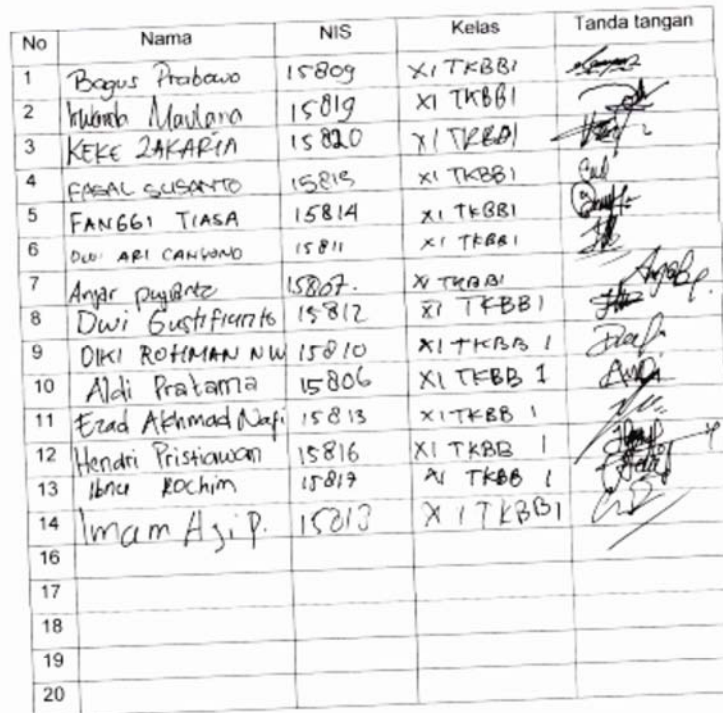 No Nama NIS Kelas Tanda tangan
1 Bagus Prabowo 15809 XI TKBB1
2 Maulana 15819 XI TKBB1
3 KEKE ZAKARIA 15820 XI TKBB1
4 FASAL SUSANTO XI TKBB1
5 FANGGI TIASA 15814 XI TKBB1
6 DWI ARI 15811 XI TKBB1
7 Anjar 15807. XI TKBB1
8 Dwi 15812 XI TKBB1
9 DIKI ROHMAN NW 15810 XI TKBB 1
10 Aldi Pratama 15806 XI TKBB 1
11 Ezad Akhmad Nafi 15813 XI TKBB 1
12 Hendri Pristiawan 15816 XI TKBB 1
13 Ibnu Rochim 15817 XI TKBB 1
14 Imam Aji P. XI TKBB1
16
17
18
19
20